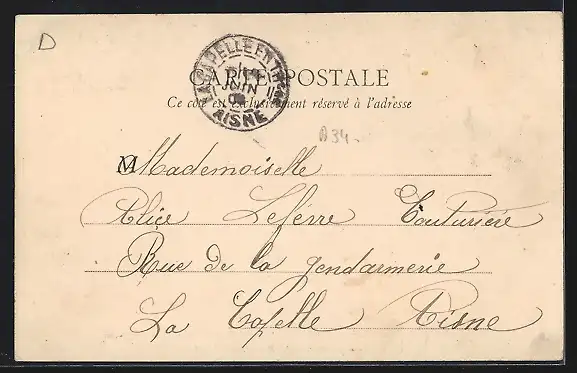 D
LA CAPELLE EN THIÉRACHE
JUIN
AISNE
CARTE POSTALE
Ce côté est exclusivement réservé à l'adresse
A34
Mademoiselle
Alice Lefèvre Couturière
Rue de la gendarmerie
La Capelle Aisne